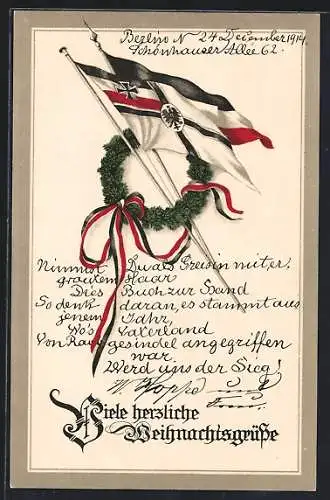 Berlin N 24 Dezember 1914
Schönhauser Allee 62.
Nimmst Du als Greisin mit er-
grautem Haar
Dies Buch zur Hand
So denk daran, es stammt aus
jenem Jahr,
Wo's Vaterland
Von Raubgesindel angegriffen
war
Werd uns der Sieg!
W. Hoppe und
Frau.
Viele herzliche
Weihnachtsgrüße